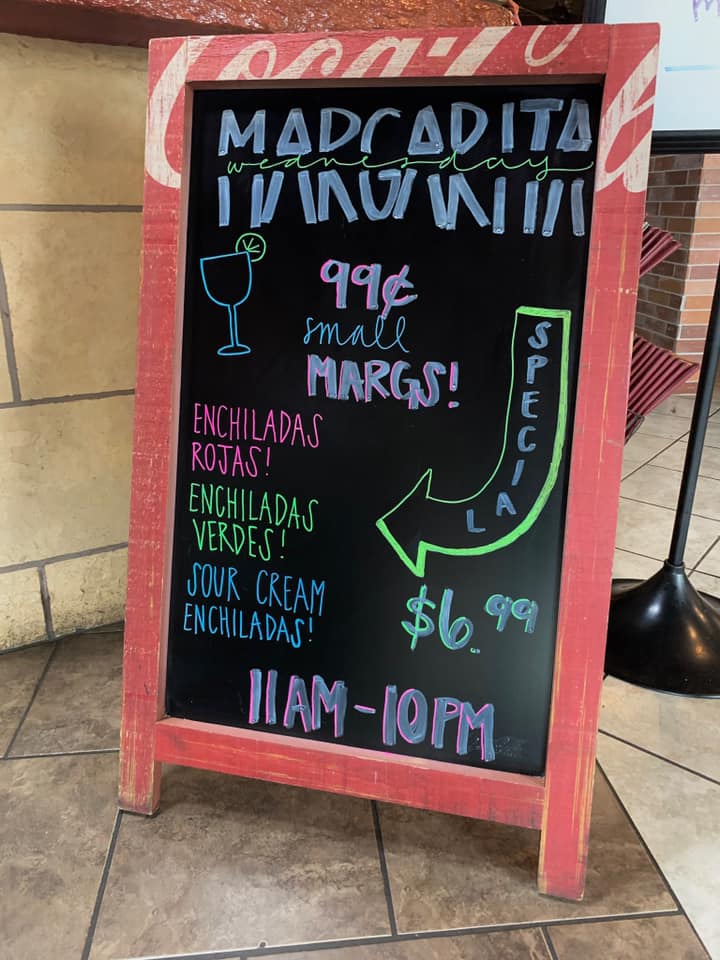 Coca-
MARGARITA
wednesday
99¢
small
MARGS!
SPECIAL
ENCHILADAS
ROJAS!
ENCHILADAS
VERDES!
SOUR CREAM
ENCHILADAS!
$6.99
11AM-10PM